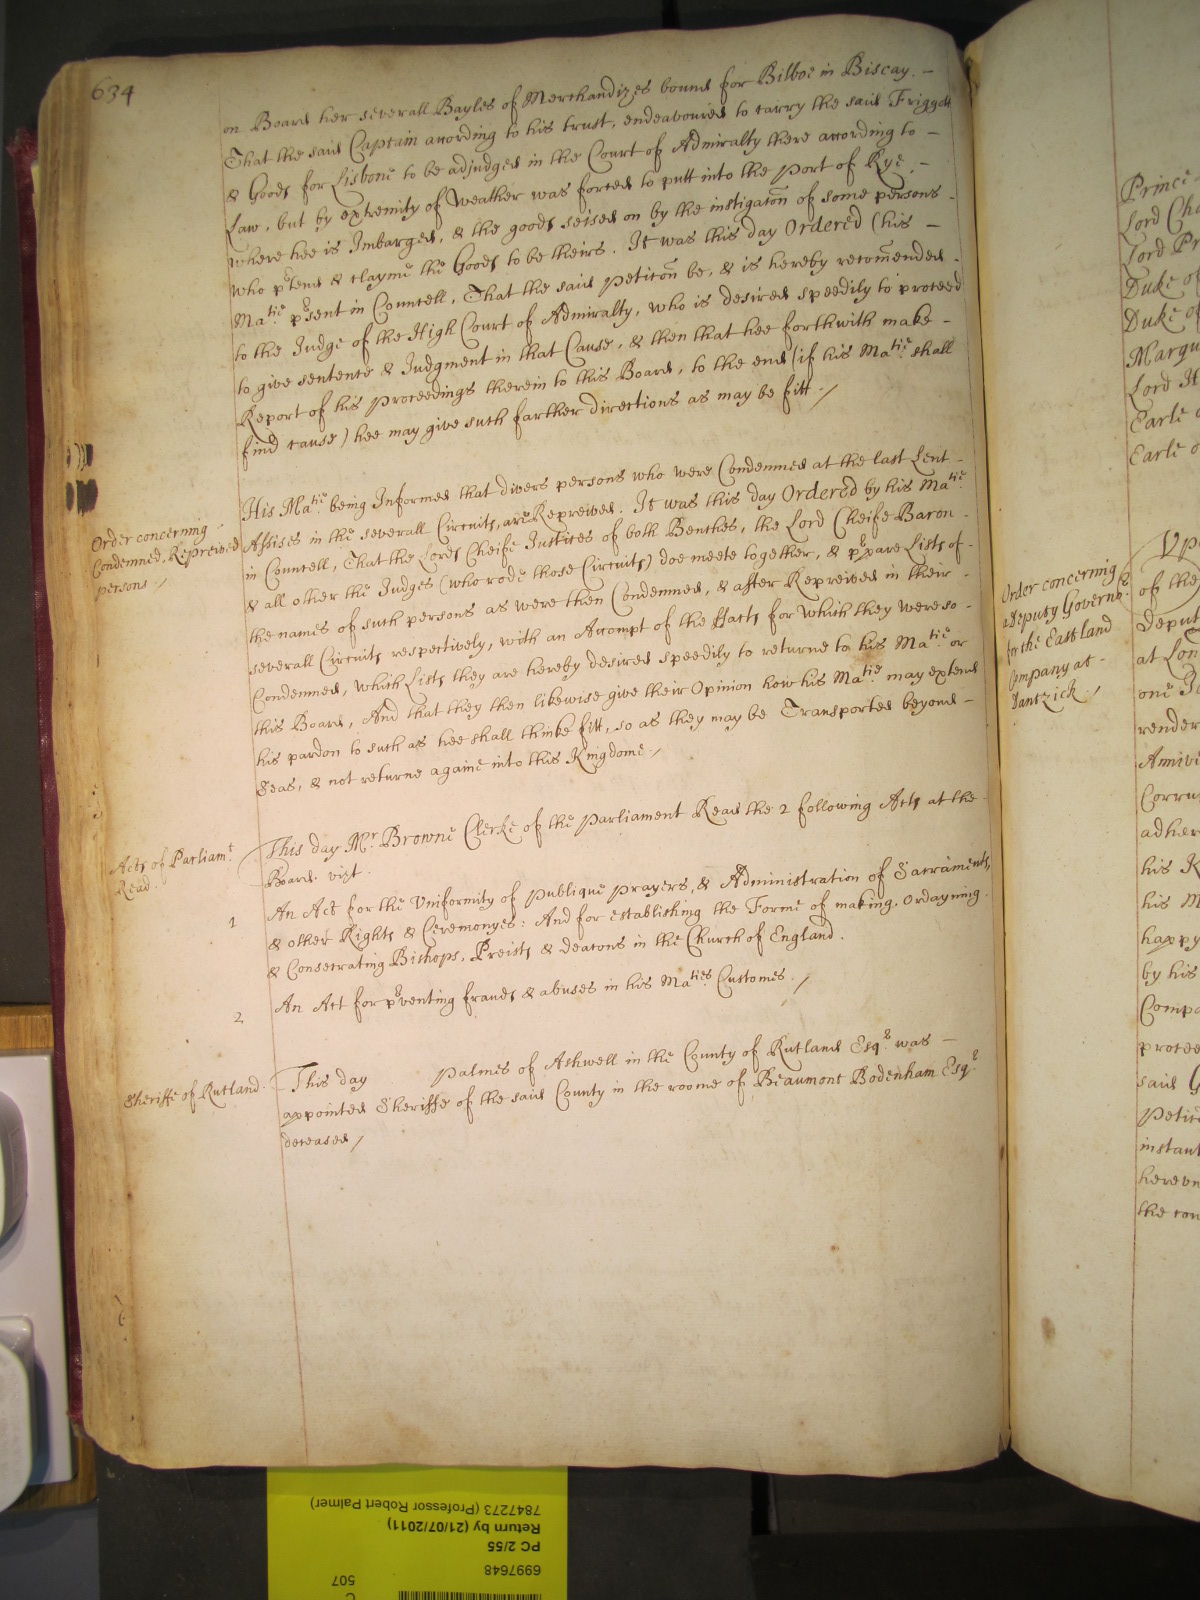 634
on Board her severall Bayles of Merchandizes bound for Bilboe in Biscay. –
That the said Captain according to his trust, endeavoured to carry the said Friggott
& Goods for Lisbone to be adjudged in the Court of Admiralty there according to –
Law, but by extremity of Weather was forced to putt into the Port of Rye, –
where hee is Imbarged, & the goods seised on by the instigacõn of some persons –
who p̲rtend & clayme the Goods to be theirs. It was this day Ordered (his –
Matie prsent in Councell, That the said Peticõn be, & is hereby recom̃ended –
to the Judge of the High Court of Admiralty, who is desired speedily to proceed
to give sentence & Judgment in that Cause, & then that hee forthwith make –
Report of his Proceedings therein to this Board, to the end (if his Matie shall
find cause) hee may give such farther directions as may be fitt. /
Order concerning
Condemned, Repreived
persons /
His Matie being Informed that divers persons who were Condemned at the last Lent –
Assises in the severall Circuits, are Repreived. It was this day Ordered by his Matie
in Councell, That the Lords Cheife Justices of both Benches, the Lord Cheife Baron –
& all other the Judges (who rode those Circuits) doe meete together, & prpare Lists of –
the names of such persons as were then Condemned, & after Repreived in their –
severall Circuits respectively, with an Accompt of the ffacts for which they were so –
Condemned, which Lists they are hereby desired speedily to returne to his Matie or
this Board, And that they then likewise give their Opinion how his Matie may extend
his pardon to such as hee shall thinke fitt, so as they may be Transported beyond –
Seas, & not returne againe into this Kingdome /
Acts of Parliamt
Read.
This day Mr Browne Clerke of the Parliament Read the 2 following Acts at the –
Board. vizt.
1
An Act for the Uniformity of Publique Prayers, & Administration of Sacraments,
& other Rights & Ceremonyes: And for establishing the Forme of making, Ordayning
& Consecrating Bishops, Preists & deacons in the Church of England.
2
An Act for prventing frauds & abuses in his Maties Customes. /
Sheriffe of Rutland.
This day Palmes of Ashwell in the County of Rutland Esqr was –
appointed Sheriffe of the said County in the roome of Beaumont Bodenham Esqr
deceased /
Prince
Lord Cha
Lord Pr
Duke of
Duke of
Marqu
Lord
Earle
Earle o
Order concerning
a Deputy Governor
for the Eastland
Company at –
Dantzick. /
Up
of the
Deput
at Lon
one
render
Corru
adher
his
his M
happy
by his
Compa
procee
said
Petic
instant
hereun
the con
7847273 (Professor Robert Palmer)
Return by (21/07/2011)
PC 2/55
6997648
507